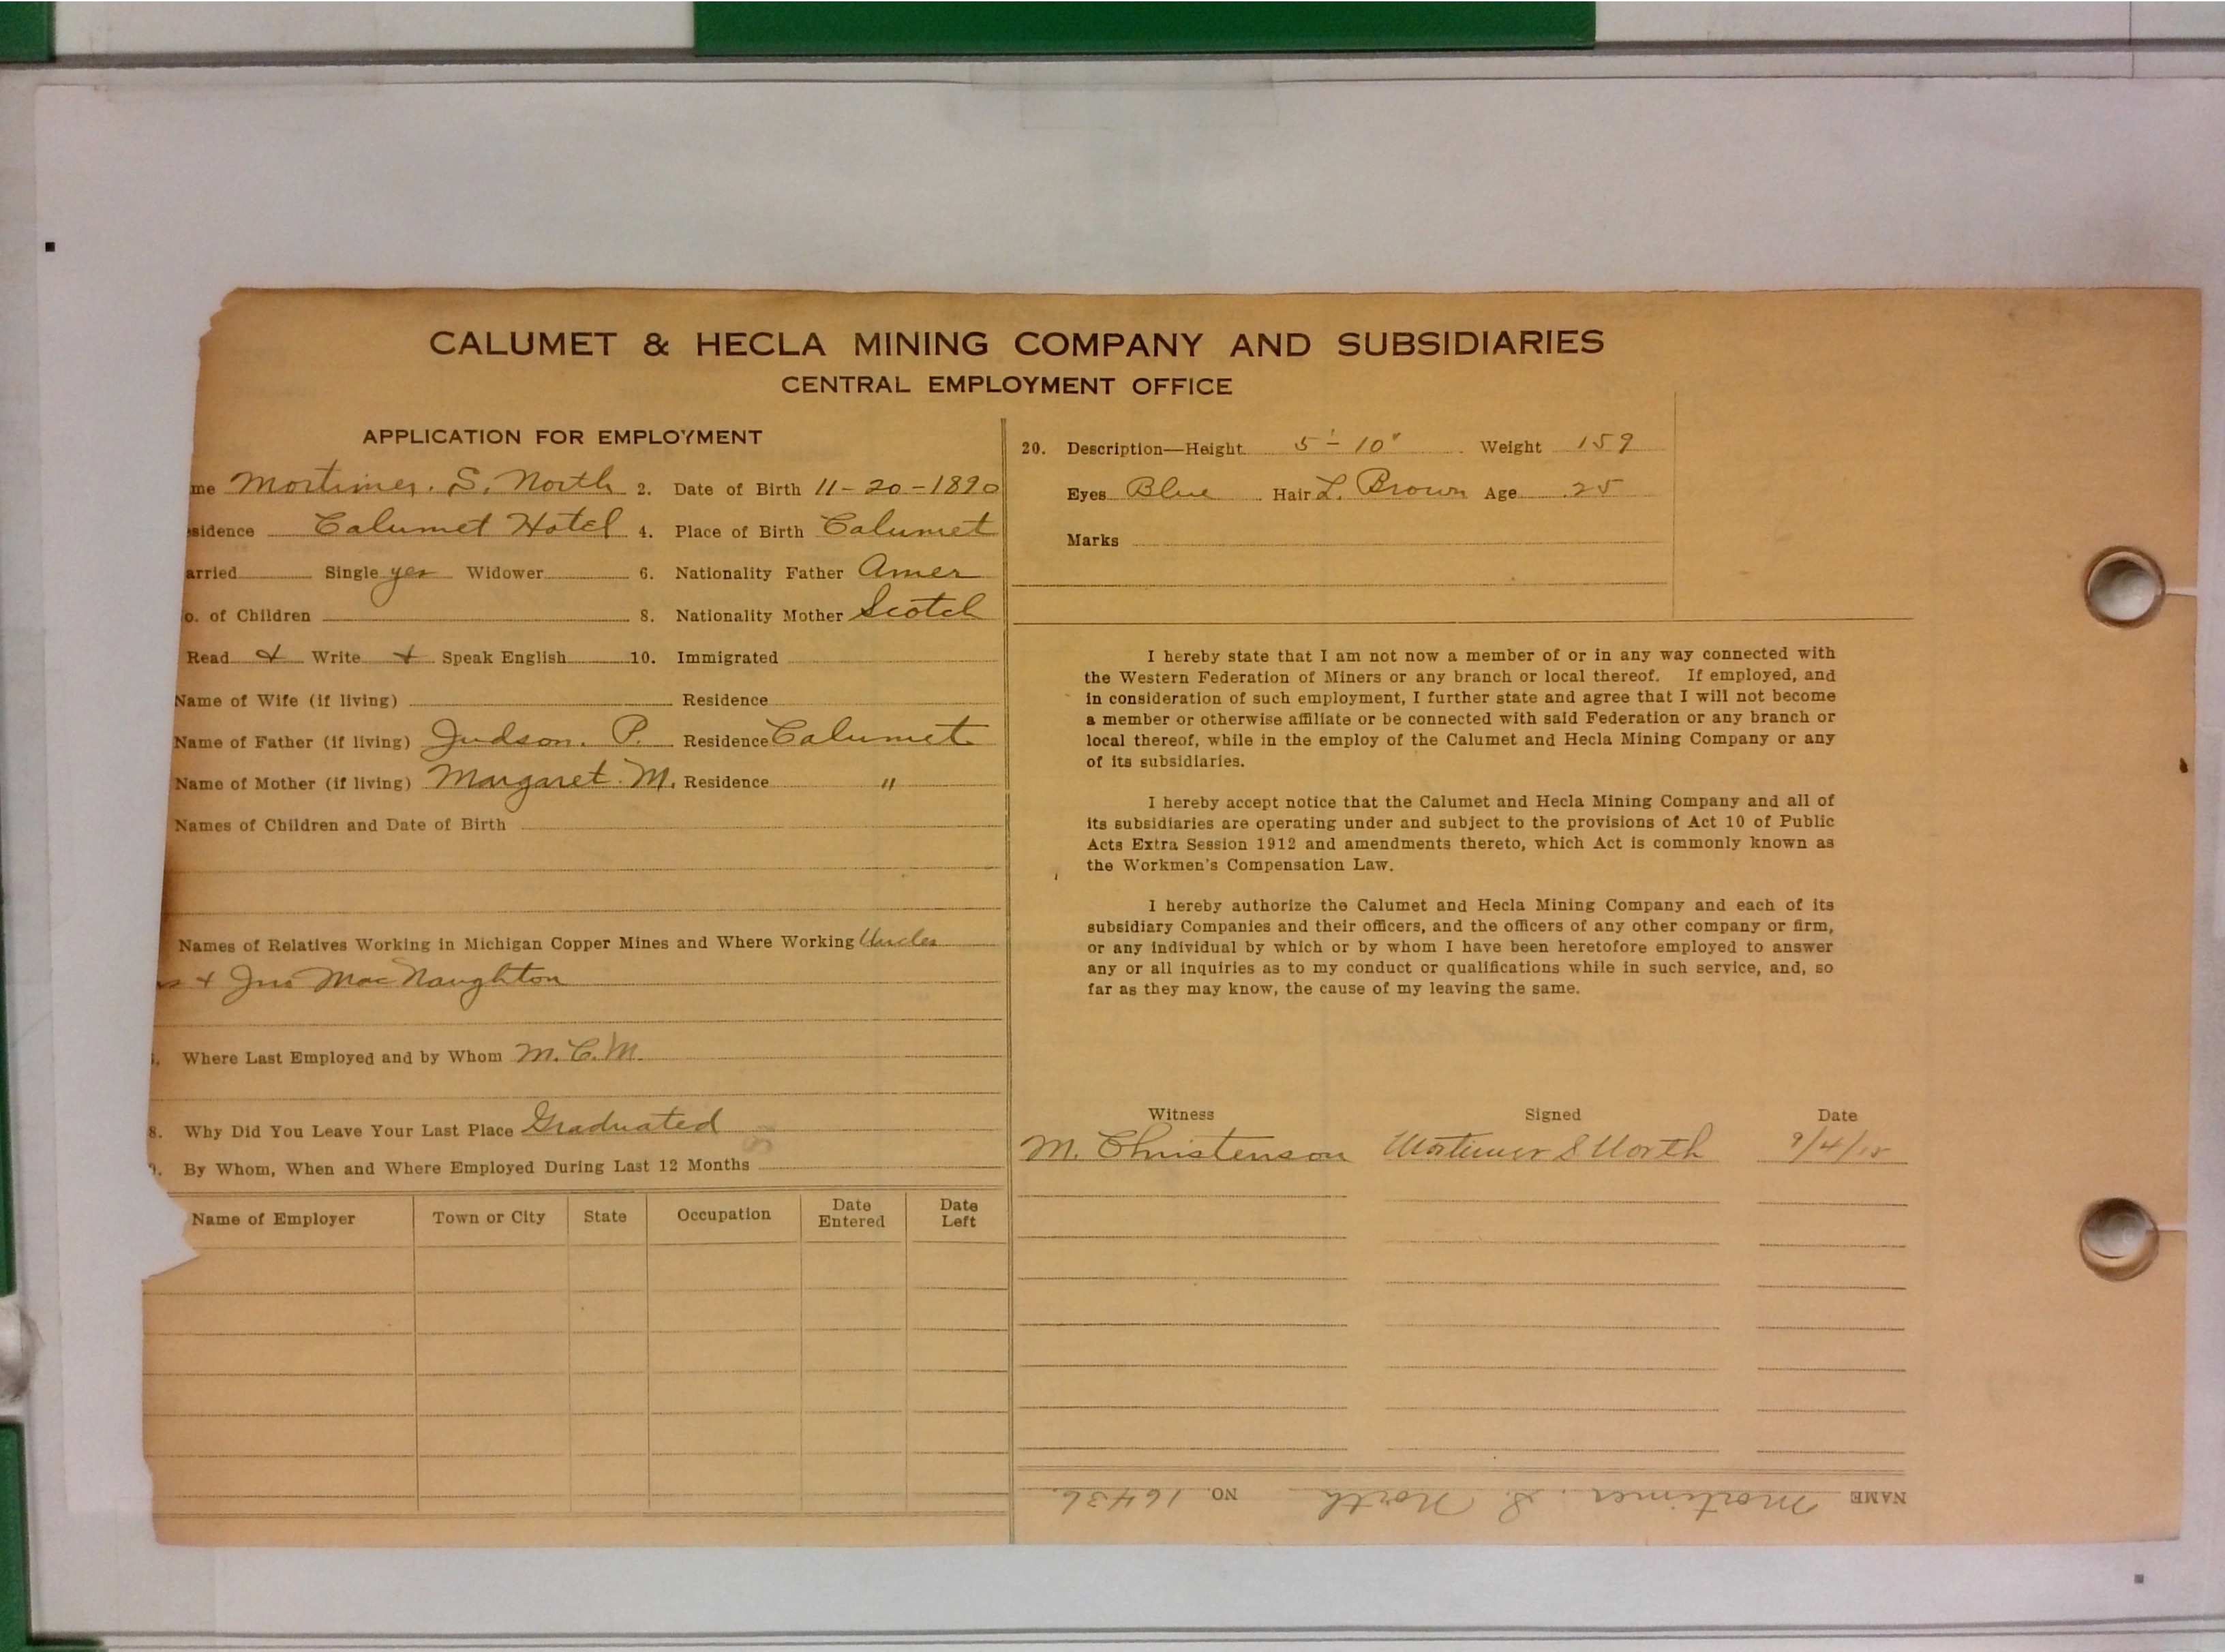 CALUMET & HECLA MINING COMPANY AND SUBSIDIARIES
CENTRAL EMPLOYMENT OFFICE
APPLICATION FOR EMPLOYMENT
me Mortimer. S. North 2. Date of Birth 11-20-1890
sidence Calumet Hotel 4. Place of Birth Calumet
arried Single yes Widower 6. Nationality Father Amer
o. of Children 8. Nationality Mother Scotch
Read Write Speak English 10. Immigrated
Name of Wife (if living) Residence
Name of Father (if living) Judson. P. Residence Calumet
Name of Mother (if living) Margaret. M. Residence "
Names of Children and Date of Birth
Names of Relatives Working in Michigan Copper Mines and Where Working Uncles
+ Jno MacNaughton
Where Last Employed and by Whom M.C.M.
8. Why Did You Leave Your Last Place Graduated
By Whom, When and Where Employed During Last 12 Months
Name of Employer Town or City State Occupation Date Entered Date Left
20. Description—Height 5'-10" Weight 159
Eyes Blue Hair L. Brown Age 25
Marks
I hereby state that I am not now a member of or in any way connected with
the Western Federation of Miners or any branch or local thereof. If employed, and
in consideration of such employment, I further state and agree that I will not become
a member or otherwise affiliate or be connected with said Federation or any branch or
local thereof, while in the employ of the Calumet and Hecla Mining Company or any
of its subsidiaries.
I hereby accept notice that the Calumet and Hecla Mining Company and all of
its subsidiaries are operating under and subject to the provisions of Act 10 of Public
Acts Extra Session 1912 and amendments thereto, which Act is commonly known as
the Workmen's Compensation Law.
I hereby authorize the Calumet and Hecla Mining Company and each of its
subsidiary Companies and their officers, and the officers of any other company or firm,
or any individual by which or by whom I have been heretofore employed to answer
any or all inquiries as to my conduct or qualifications while in such service, and, so
far as they may know, the cause of my leaving the same.
Witness Signed Date
M. Christenson Mortimer S North 9/4/15
NAME Mortimer. S. North NO. 16436